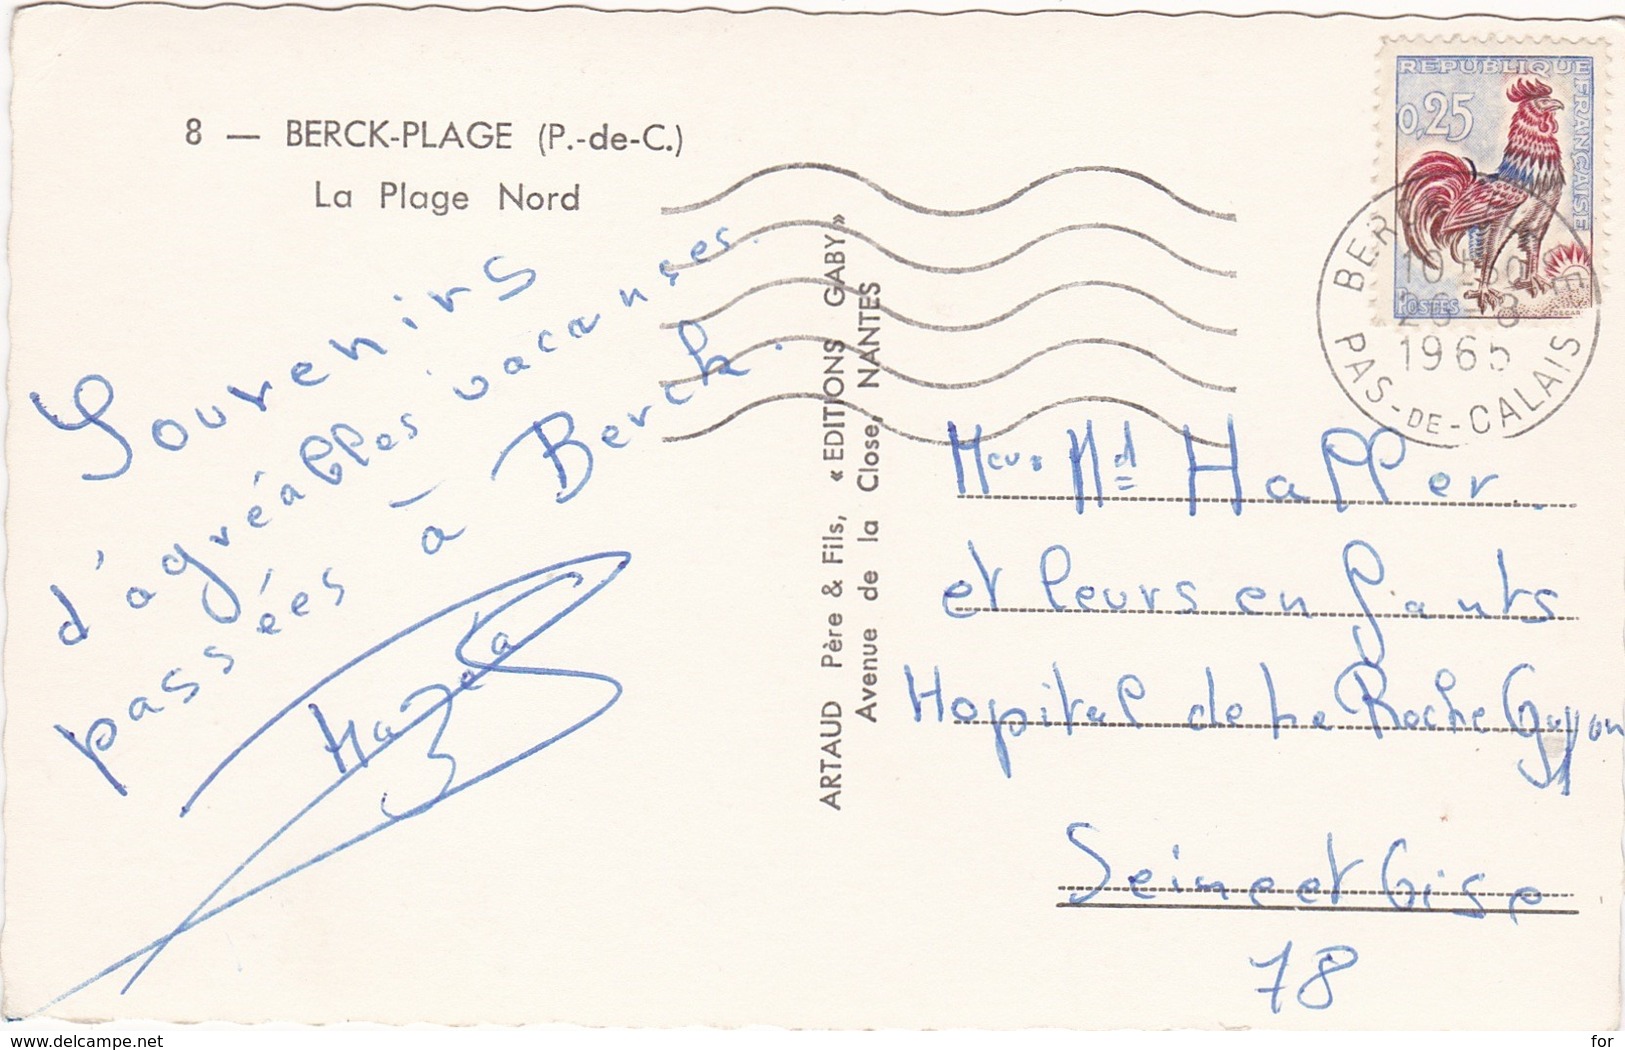 8 — BERCK-PLAGE (P.-de-C.)
La Plage Nord
Souvenirs
d'agréables vacances
passées à Berck.
ARTAUD Père & Fils, « EDITIONS GABY »
Avenue de la Close, NANTES
REPUBLIQUE
FRANÇAISE
0,25
POSTES
1965
PAS-DE-CALAIS
Md Haller
et leurs enfants
Hopital de La Roche Guyon
Seine et Oise
78
www.delcampe.net
for